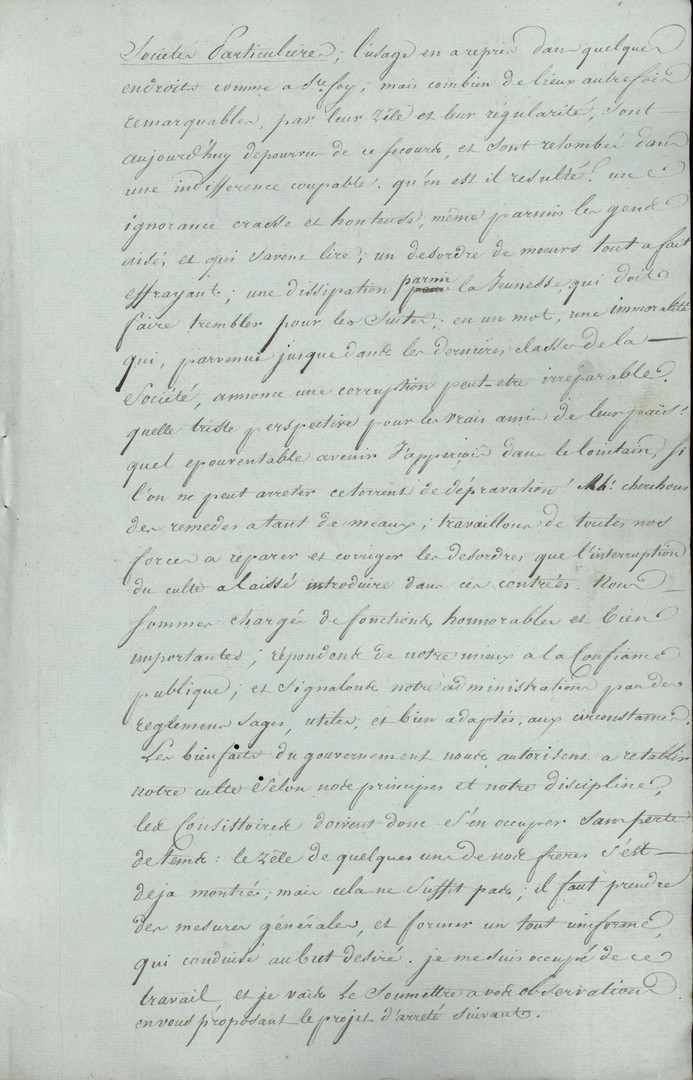 Societés Particulieres; l'usage en a repris dans quelques
endroits comme a Ste foy; mais combien de lieux autrefois
remarquables, par leur zèle et leur régularité, sont
aujourd'huy depourvus de ce secours, et sont retombés dans
une indifference coupable. qu'en est il resulté? une
ignorance crasse et honteuse, même parmis les gens
aisés, et qui savent lire; un desordre de moeurs tout a fait
effrayant; une dissipation parmi la Jeunesse, qui doit
faire trembler pour les suites; en un mot, une immoralité
qui, parvenue jusque dans les dernières classes de la
Société, annonce une corruption peut-etre irréparable.
quelle triste perspective pour les vrais amis de leur païs!
quel epouventable avenir J'apperçois dans le lointain, si
l'on ne peut arreter ce torrent de dépravation! Ah! cherchons
des remedes a tant de meaux; travaillons de toutes nos
forces a réparer et corriger les desordres que l'interruption
du culte a laissé introduire dans ces contrées. Nous
sommes chargés de fonctions honnorables et bien
importantes; répondons de notre mieux a la Confiance
publique; et signalons notre administration par des
reglemens sages, utiles, et bien adaptés, aux circonstances.
Les bienfaits du gouvernement nous autorisent a retablir
notre culte selon nos principes et notre discipline,
les Consistoires doivent donc s'en occuper sans perte
de tems: le zèle de quelques uns de nos freres s'est
deja montré; mais cela ne suffit pas; il faut prendre
des mesures générales, et former un tout uniforme,
qui conduise au but desiré. je me suis occupé de ce
travail et je vais le soumettre a vos observations
en vous proposant le projet d'arreté suivant.